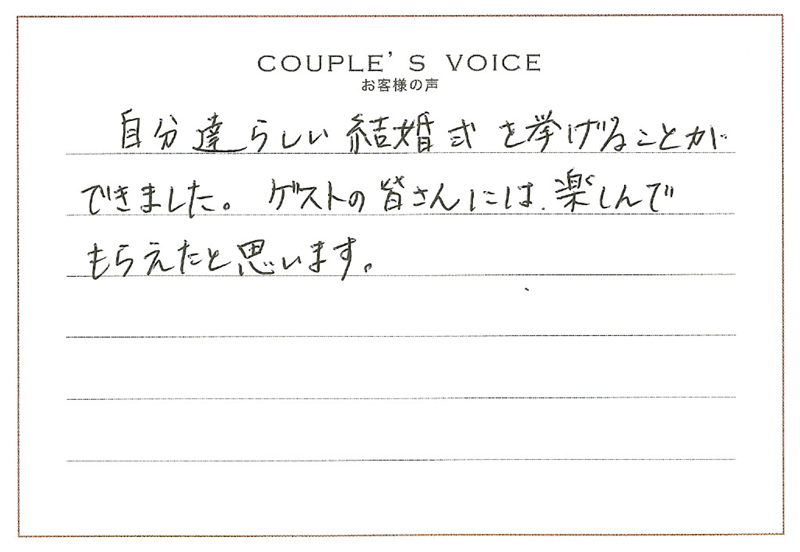 COUPLE'S VOICE
お客様の声
自分達らしい結婚式を挙げることが
できました。ゲストの皆さんには、楽しんで
もらえたと思います。